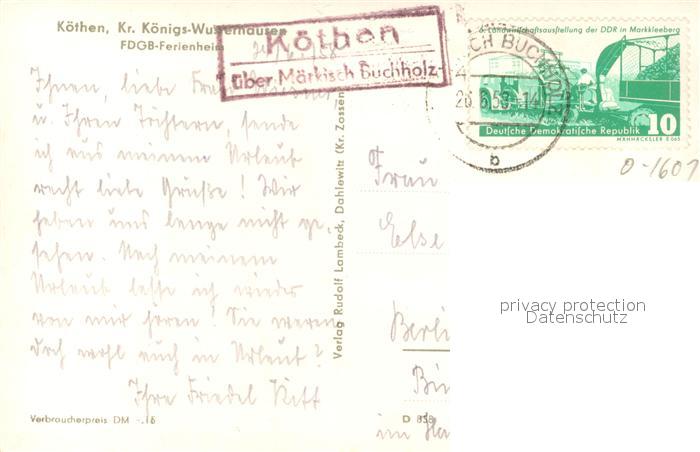 Köthen, Kr. Königs-Wusterhausen
FDGB-Ferienheim
Köthen
über Märkisch Buchholz
6. Landwirtschaftsausstellung der DDR in Markkleeberg
Deutsche Demokratische Republik 10
MÄHHÄCKSLER E 065
CH BUCHHOL
26.6.58-14
b
0-1607
Ihnen, liebe Frau
u. Ihren Töchtern, sende
ich aus meinem Urlaub
recht liebe Grüße! Wir
haben uns lange nicht ge-
sehen. Nach meinem
Urlaub lasse ich wieder
von mir hören! Sie waren
doch wohl auch in Urlaub?
Ihre Friedel
Verbraucherpreis DM -.15
Verlag Rudolf Lambeck, Dahlewitz (Kr. Zossen
Frau
Else
Berli
im Ha
D 858
privacy protection
Datenschutz